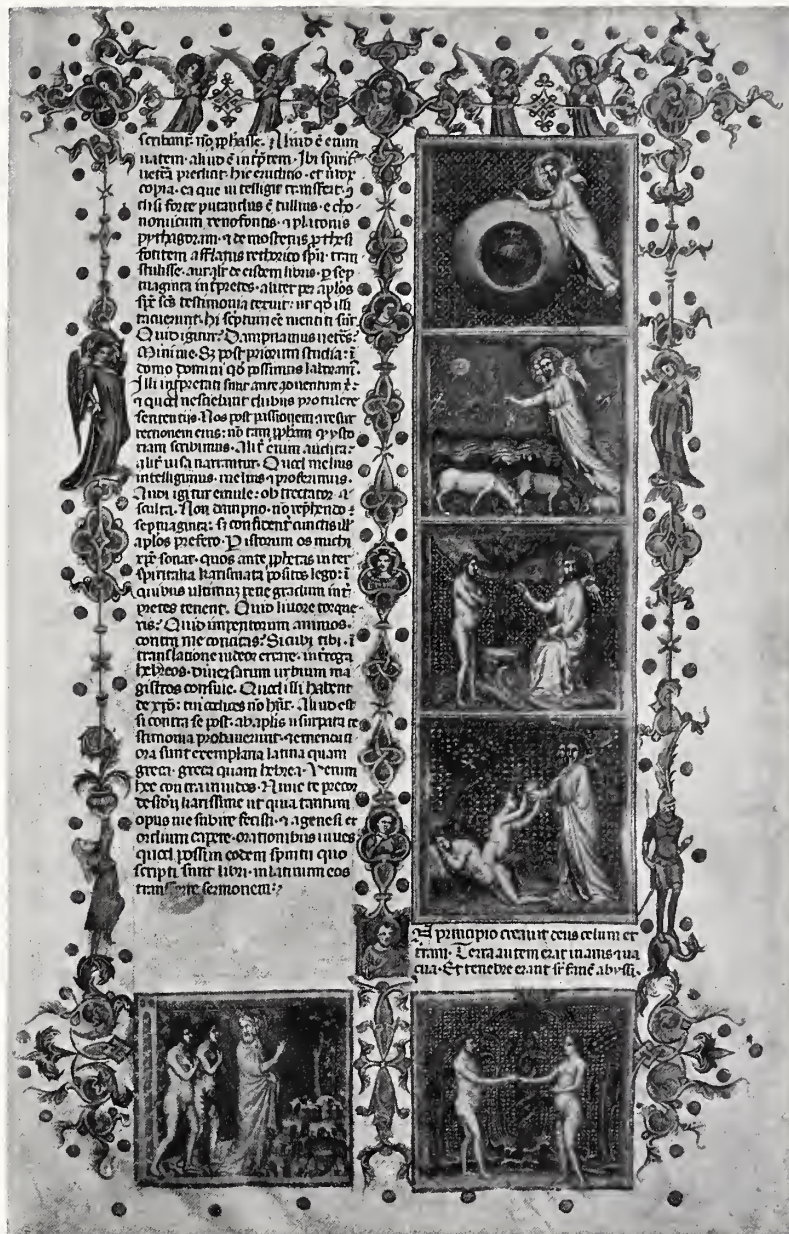 scribant nō ꝓphasse. Aliud ē enim
uatem. aliud ē inṫptem. Ibi spirit᷒
uētura predicit. hic eruditio. et uꝫboꝝ
copia. ea que intelligit transfert.
nisi forte putandus ē tullius. echo
nomicum xenofontis. ⁊ platonis
pythagoram. ⁊ demostenis ꝓthesi
fontem afflatus rethorico spū. tran
stulisse. aut alit̄ de eisdem libris. ꝑ sep
tuaginta inṫpretes. aliter per aplōs
sp̄c sc̄s testimonia texuit: ut qđ illi
tacuerunt. hi scriptum eē mentiti sūt
Quid igitur? Dampnamus uetēs?
Minime. Sꝫ post priorum studia: ī
domo domini qđ possimus laboramꝰ.
Illi inṫpretati sunt ante aduentum x̄.
⁊ quod nesciebant dubiis protulere
sententiis. Nos post passionem ⁊ resur
rectionem eius: nō tam ꝓphiam qͣꝫ ysto
riam scribimus. Alit̄ enim audita:
alit̄ uisa narrantur. Quod melius
intelligimus. melius ⁊ proferimus.
Audi igitur emule: obtrectator a
sculta. Non dampno. nō rep̄hendo
septuaginta: sꝫ confident̄ cunctis ill̄
aplōs prefero. P istorum os michi
xp̄c sonat. quos ante ꝓphetas inter
spiritalia karismata positos lego: ī
quibus ultimum pene gradum inṫ
pretes tenent. Quid liuore torque
ris? Quid imperitorum animos.
contra me concitas? Sicubi tibi. ī
translatione uideor errare. interroga
hebreos. diuersarum urbium ma
gistros consule. Quod illi habent
de xp̄o: tui codices nō hn̄t. Aliud est
si contra se post. ab aplīs usurpata te
stimonia probauerunt. ⁊ emendati
ora sunt exemplaria latina quam
greca. greca quam hebrea. Verum
hec contra inuidos. Nunc te precor
desidi karissime ut quia tantum
opus me subire fecisti. ⁊ a genesi et
ordium capere. orationibus iuues
quod possim eodem spiritu quo
scripti sunt libri. in latinum eos
transferre sermonem.
principio creauit deus celum et
t̄ram. Terra autem erat inanis ⁊ ua
cua. Et tenebre erant sr̄ faciē abyssi.